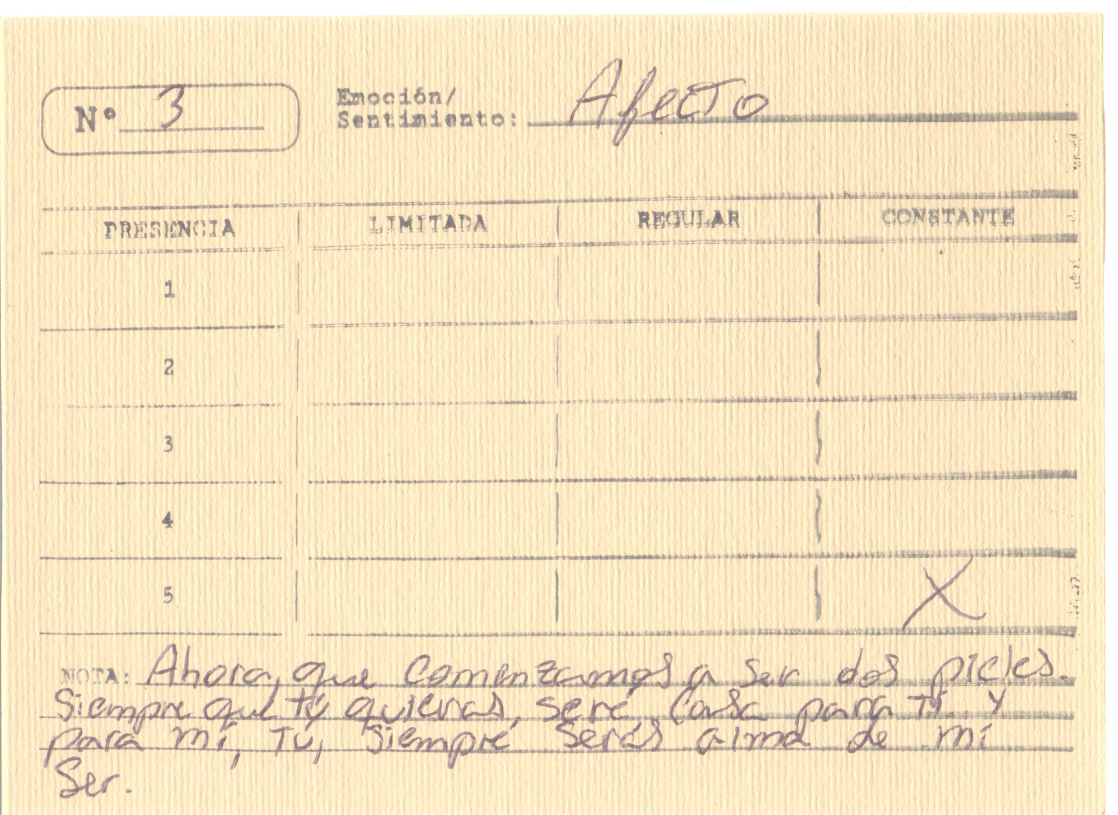 Nº 3
Emoción/
Sentimiento: Afecto
PRESENCIA LIMITADA REGULAR CONSTANTE
1
2
3
4
5 X
NOTA: Ahora, que comenzamos a ser dos pieles.
Siempre que tú quieras, seré, casa para ti. Y
para mí, Tú, siempre serás alma de mi
Ser.